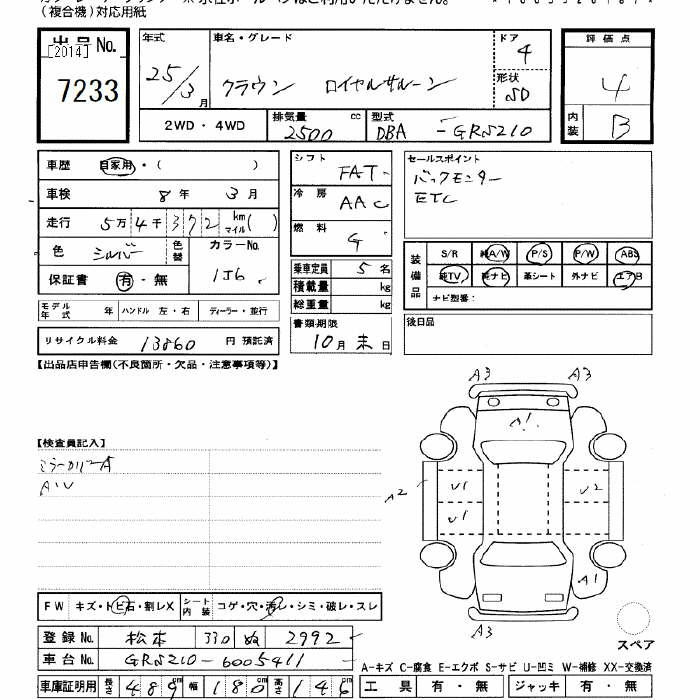 (複合機)対応用紙
出品No.
[2014]
7233
年式 25/3月
車名・グレード
クラウン ロイヤルサルーン
ドア 4
形状 SD
評価点 4
内装 B
2WD・4WD
排気量 2500 cc
型式 DBA -GRS210
車歴 自家用・( )
車検 8年 3月
走行 5万4千372 km マイル( )
色 シルバー 色替
カラーNo. 1J6
保証書 有・無
シフト FAT
冷房 AAC
燃料 G
乗車定員 5名
積載量 kg
総重量 kg
書類期限
10月末日
セールスポイント
バックモニター
ETC
装備品
S/R 純A/W P/S P/W ABS
純TV 純ナビ 革シート 外ナビ エアB
ナビ型番:
後日品
モデル年式 年 ハンドル 左・右 ディーラー・並行
リサイクル料金 13860 円 預託済
【出品店申告欄(不良箇所・欠品・注意事項等)】
A3 A3
A1
【検査員記入】
ミラーカバーA
AW
A2
U1 U2
U1
A1
A3
スペア
FW キズ・トビ石・割レX シート内装 コゲ・穴・汚レ・シミ・破レ・スレ
登録No. 松本 330 ぬ 2992
車台No. GRS210-6005411
A-キズ C-腐食 E-エクボ S-サビ U-凹ミ W-補修 XX-交換済
車庫証明用 長さ 489cm 幅 180cm 高さ 146
工具 有・無 ジャッキ 有・無